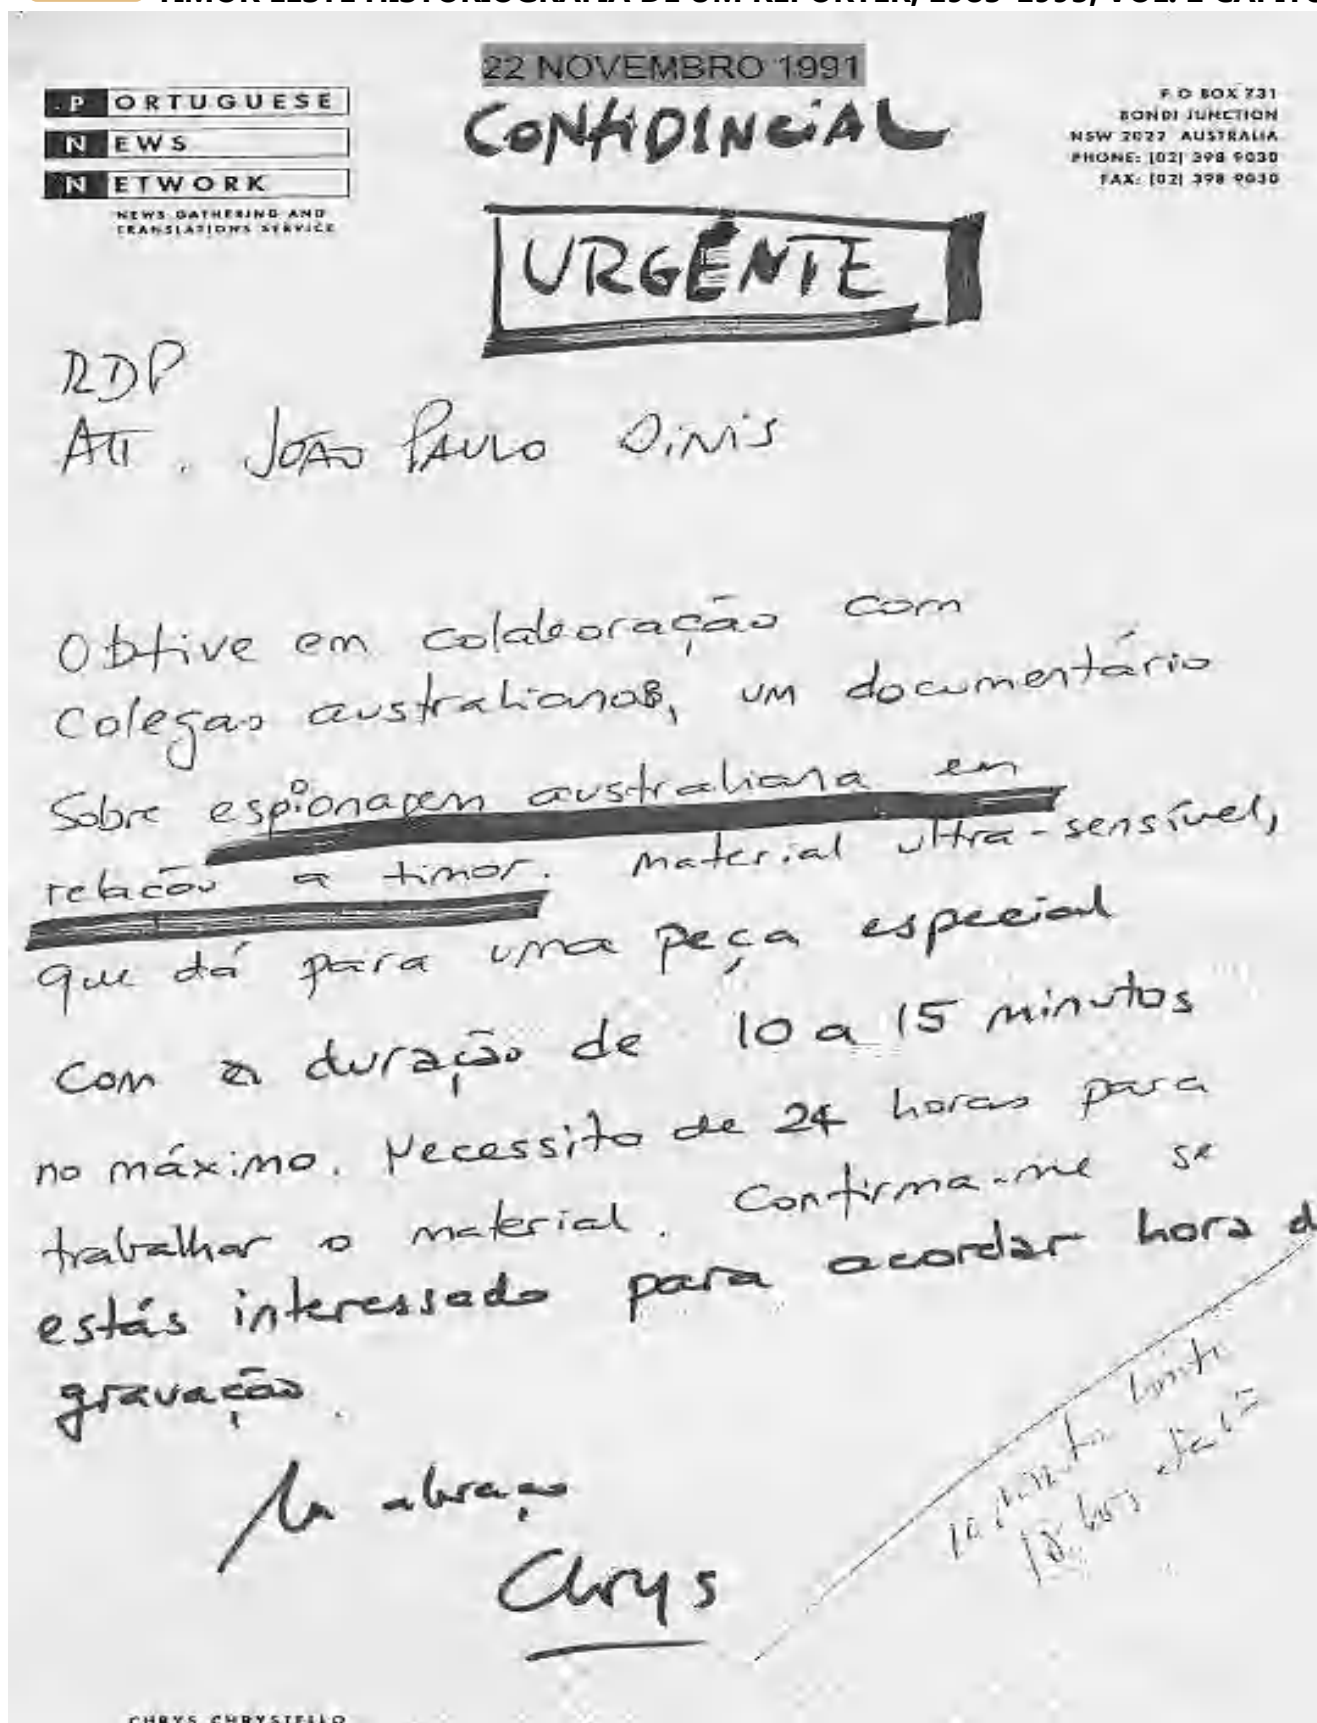 TIMOR LESTE HISTORIOGRAFIA DE UM REPÓRTER, 1983-1993, VOL.
22 NOVEMBRO 1991
PORTUGUESE
NEWS
NETWORK
NEWS GATHERING AND
TRANSLATIONS SERVICE
CONFIDINCIAL
P O BOX 731
BONDI JUNCTION
NSW 2022 AUSTRALIA
PHONE: (02) 398 9030
FAX: (02) 398 9030
URGENTE
RDP
ATT. JOÃO PAULO DINIS
Obtive em colaboração com
colegas australianos, um documentário
sobre espionagem australiana em
relação a timor. Material ultra-sensível,
que dá para uma peça especial
com a duração de 10 a 15 minutos
no máximo. Necessito de 24 horas para
trabalhar o material. Confirma-me se
estás interessado para acordar hora d
gravação.
Um abraço
Chrys
CHRYS CHRYSTELLO